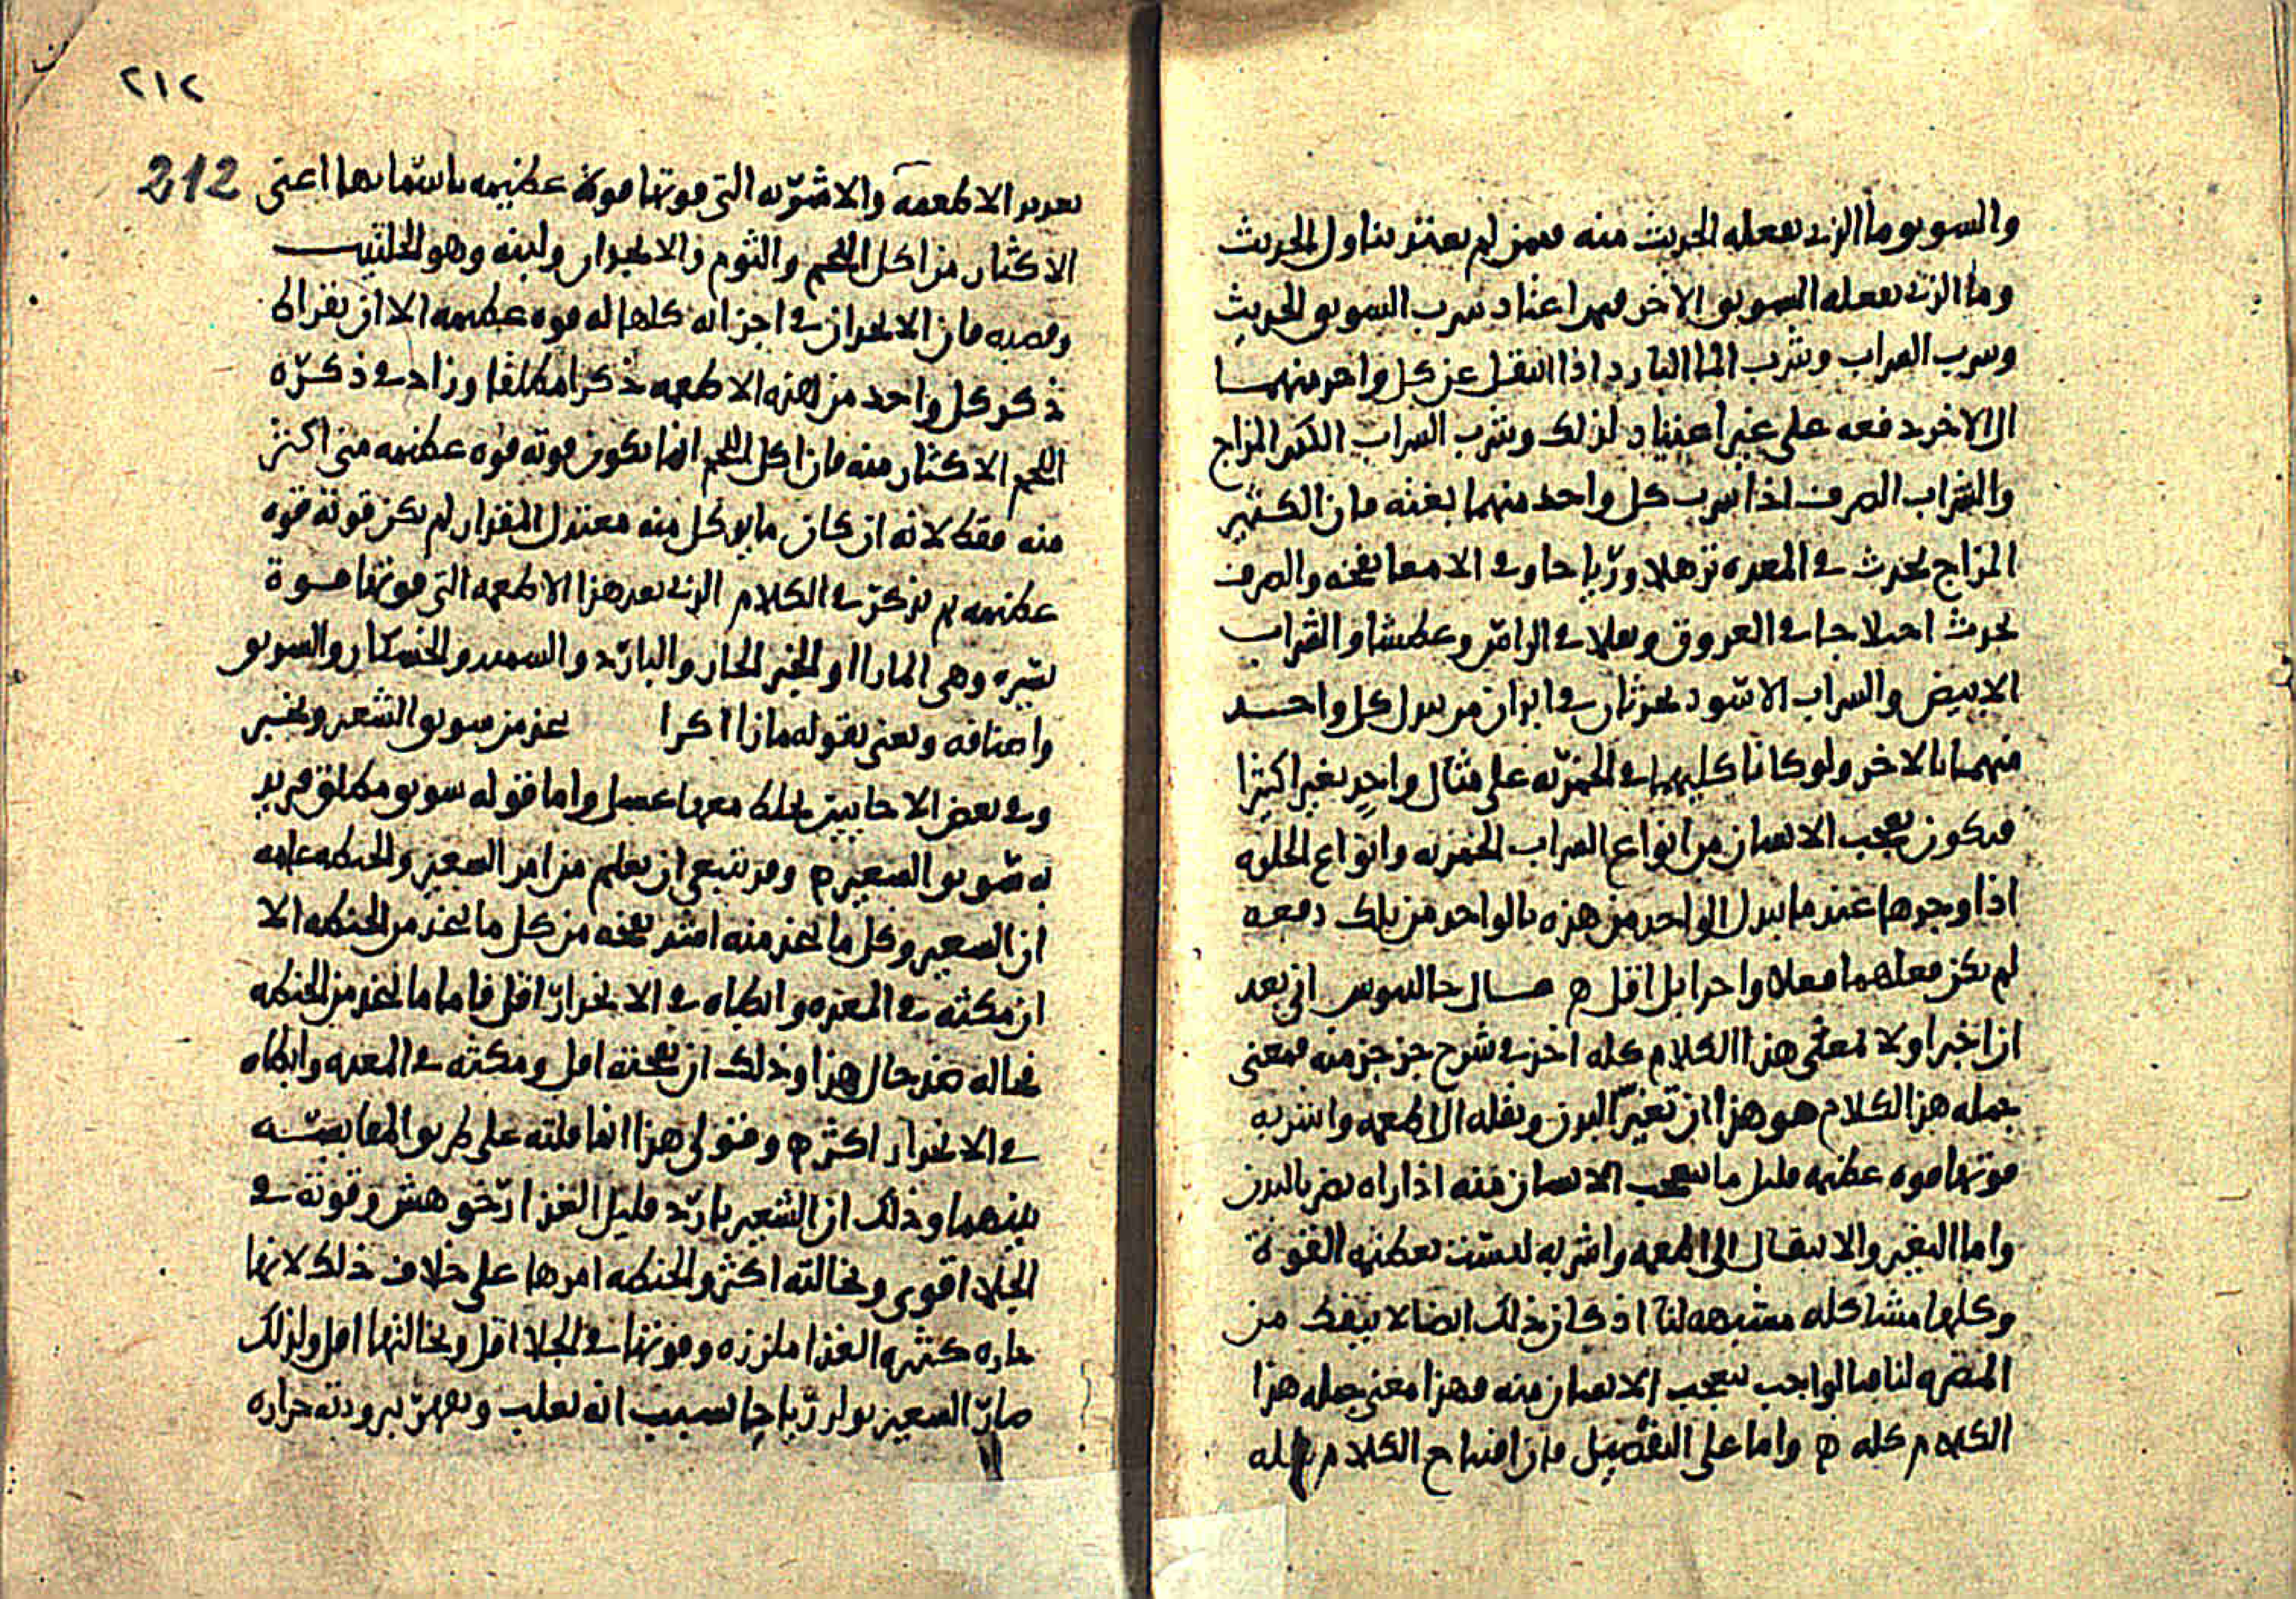 والسويق وما الذي يفعله الحديث منه فيمن لم يعتد تناول الحديث
وما الذي يفعله السويق الاخر فيمن اعتاد شرب السويق الحديث
وشرب الشراب وشرب الما البارد اذا انتقل عن كل واحد منهما
الى الاخر دفعه على غير اعتياد لذلك وشرب الشراب الكثير المزاج
والشراب الصرف اذا شرب كل واحد منهما بغتة فان الكثير
المزاج يحدث في المعده ترهلا ورياحا وفي الامعا نفخه والصرف
يحدث اختلاجا في العروق وثقلا في الراس وعطشا والشراب
الابيض والشراب الاسود يحدثان في ابدان من يبدل كل واحد
منهما بالاخر ولو كانا كليهما في الخمريه على مثال واحد تغيرا كثيرا
فيكون تعجب الانسان من انواع الشراب الخمريه وانواع الحلوه
اذا وجدها عند ما يبدل الواحد من هذه بالواحد من تلك دفعه
لم يكن فعلهما فعلا واحدا بل اقل ه قال جالينوس اني بعد
ان اخبر اولا بمعنى هذا الكلام كله اخذ في شرح جز جز منه فمعنى
جمله هذا الكلام هو هذا ان تغير البدن ونقله الى اطعمه واشربه
قوتها قوه عظيمه قليل ما يتعجب الانسان منه اذا راه يضر بالبدن
واما التغير والانتقال الى اطعمه واشربه ليست بعظيمه القوة
وكلها مشاكله مشبهه لنا اذ كان ذلك ايضا لا ينفك من
المضره لنا فبالواجب يتعجب الانسان منه فهذا معنى جمله هذا
الكلام كله ه واما على التفصيل فان افتتاح الكلام كله
٢١٢
212
تعديد الاطعمه والاشربه التي قوتها قوة عظيمه باسمايها اعني
الاكثار من اكل اللحم والثوم والانجدان ولبنه وهو الحلتيت
وقصبه فان الانجدان في اجزائه كلها له قوه عظيمه الا ان بقراط
ذكر كل واحد من هذه الاطعمه ذكرا مطلقا وزاد في ذكره
اللحم الاكثار منه فان اكل اللحم انما تكون قوته قوه عظيمه متى اكثر
منه فقط لانه ان كان ما يوكل منه معتدل المقدار لم يكن قوته قوه
عظيمه ثم يذكر في الكلام الذي بعد هذا الاطعمه التي قوتها قوة
يسيره وهي المازا والخبز الحار والبارد والسميد والخشكار والسويق
واصنافه ويعني بقوله مازا اكرا تتخذ من سويق الشعير وتخبز
وفي بعض الاحايين يخلط معها عسل واما قوله سويق مطلق فيريد
به سويق الشعير ه وقد ينبغي ان تعلم من امر الشعير والحنطه عامه
ان الشعير وكل ما يتخذ منه اشد نفخه من كل ما يتخذ من الحنطه الا
ان مكثه في المعده وابطاه في الانحدار اقل فاما ما يتخذ من الحنطه
فحاله ضد حال هذا وذلك ان نفخته اقل ومكثه في المعده وابطاه
في الانحدار اكثر ه وقولي هذا انما قلته على طريق المقايسه
بينهما وذلك ان الشعير بارد قليل الغذا رخو هش وقوته في
الجلا اقوى ونخالته اكثر والحنطه امرها على خلاف ذلك لانها
حاره كثيره الغذا ملززه وقوتها في الجلا اقل ونخالتها اقل ولذلك
صار الشعير يولد رياحا بسبب انه يغلب ويقهر ببرودته حراره